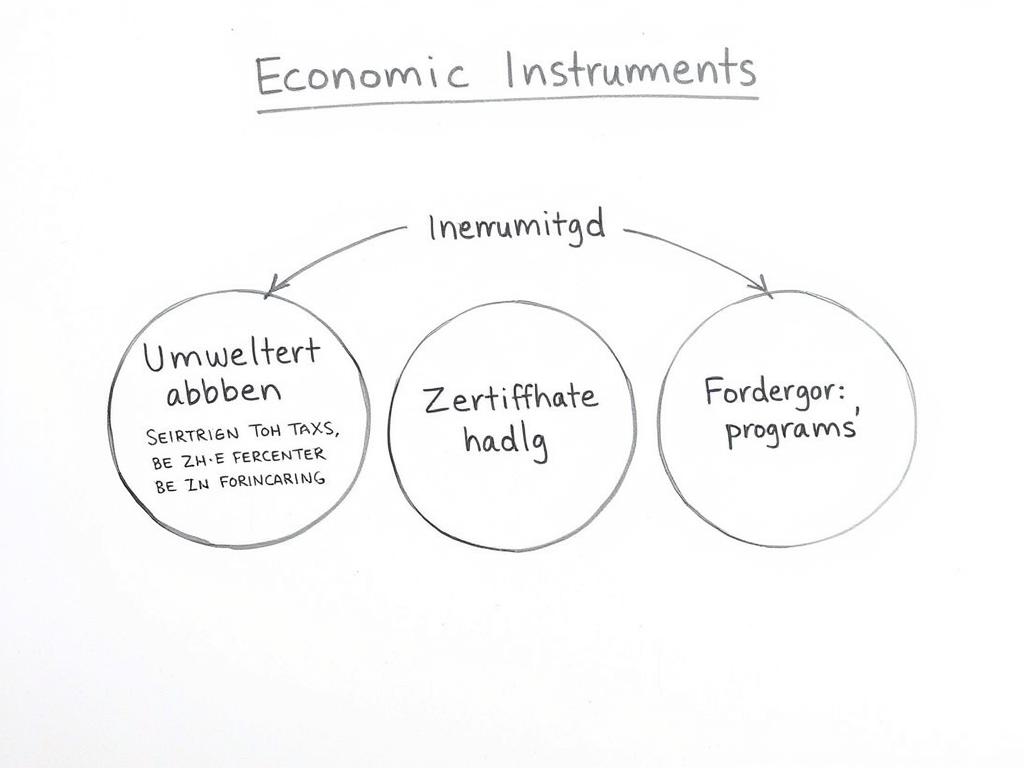 Economic Instruments
Inerrumitgd
Umweltert
abbben
SEIRTRIGN TOH TAXS,
BE ZH·E FERCENTER
BE IN FORINCARING
Zertiffhate
hadlg
Fordergor:
programs'